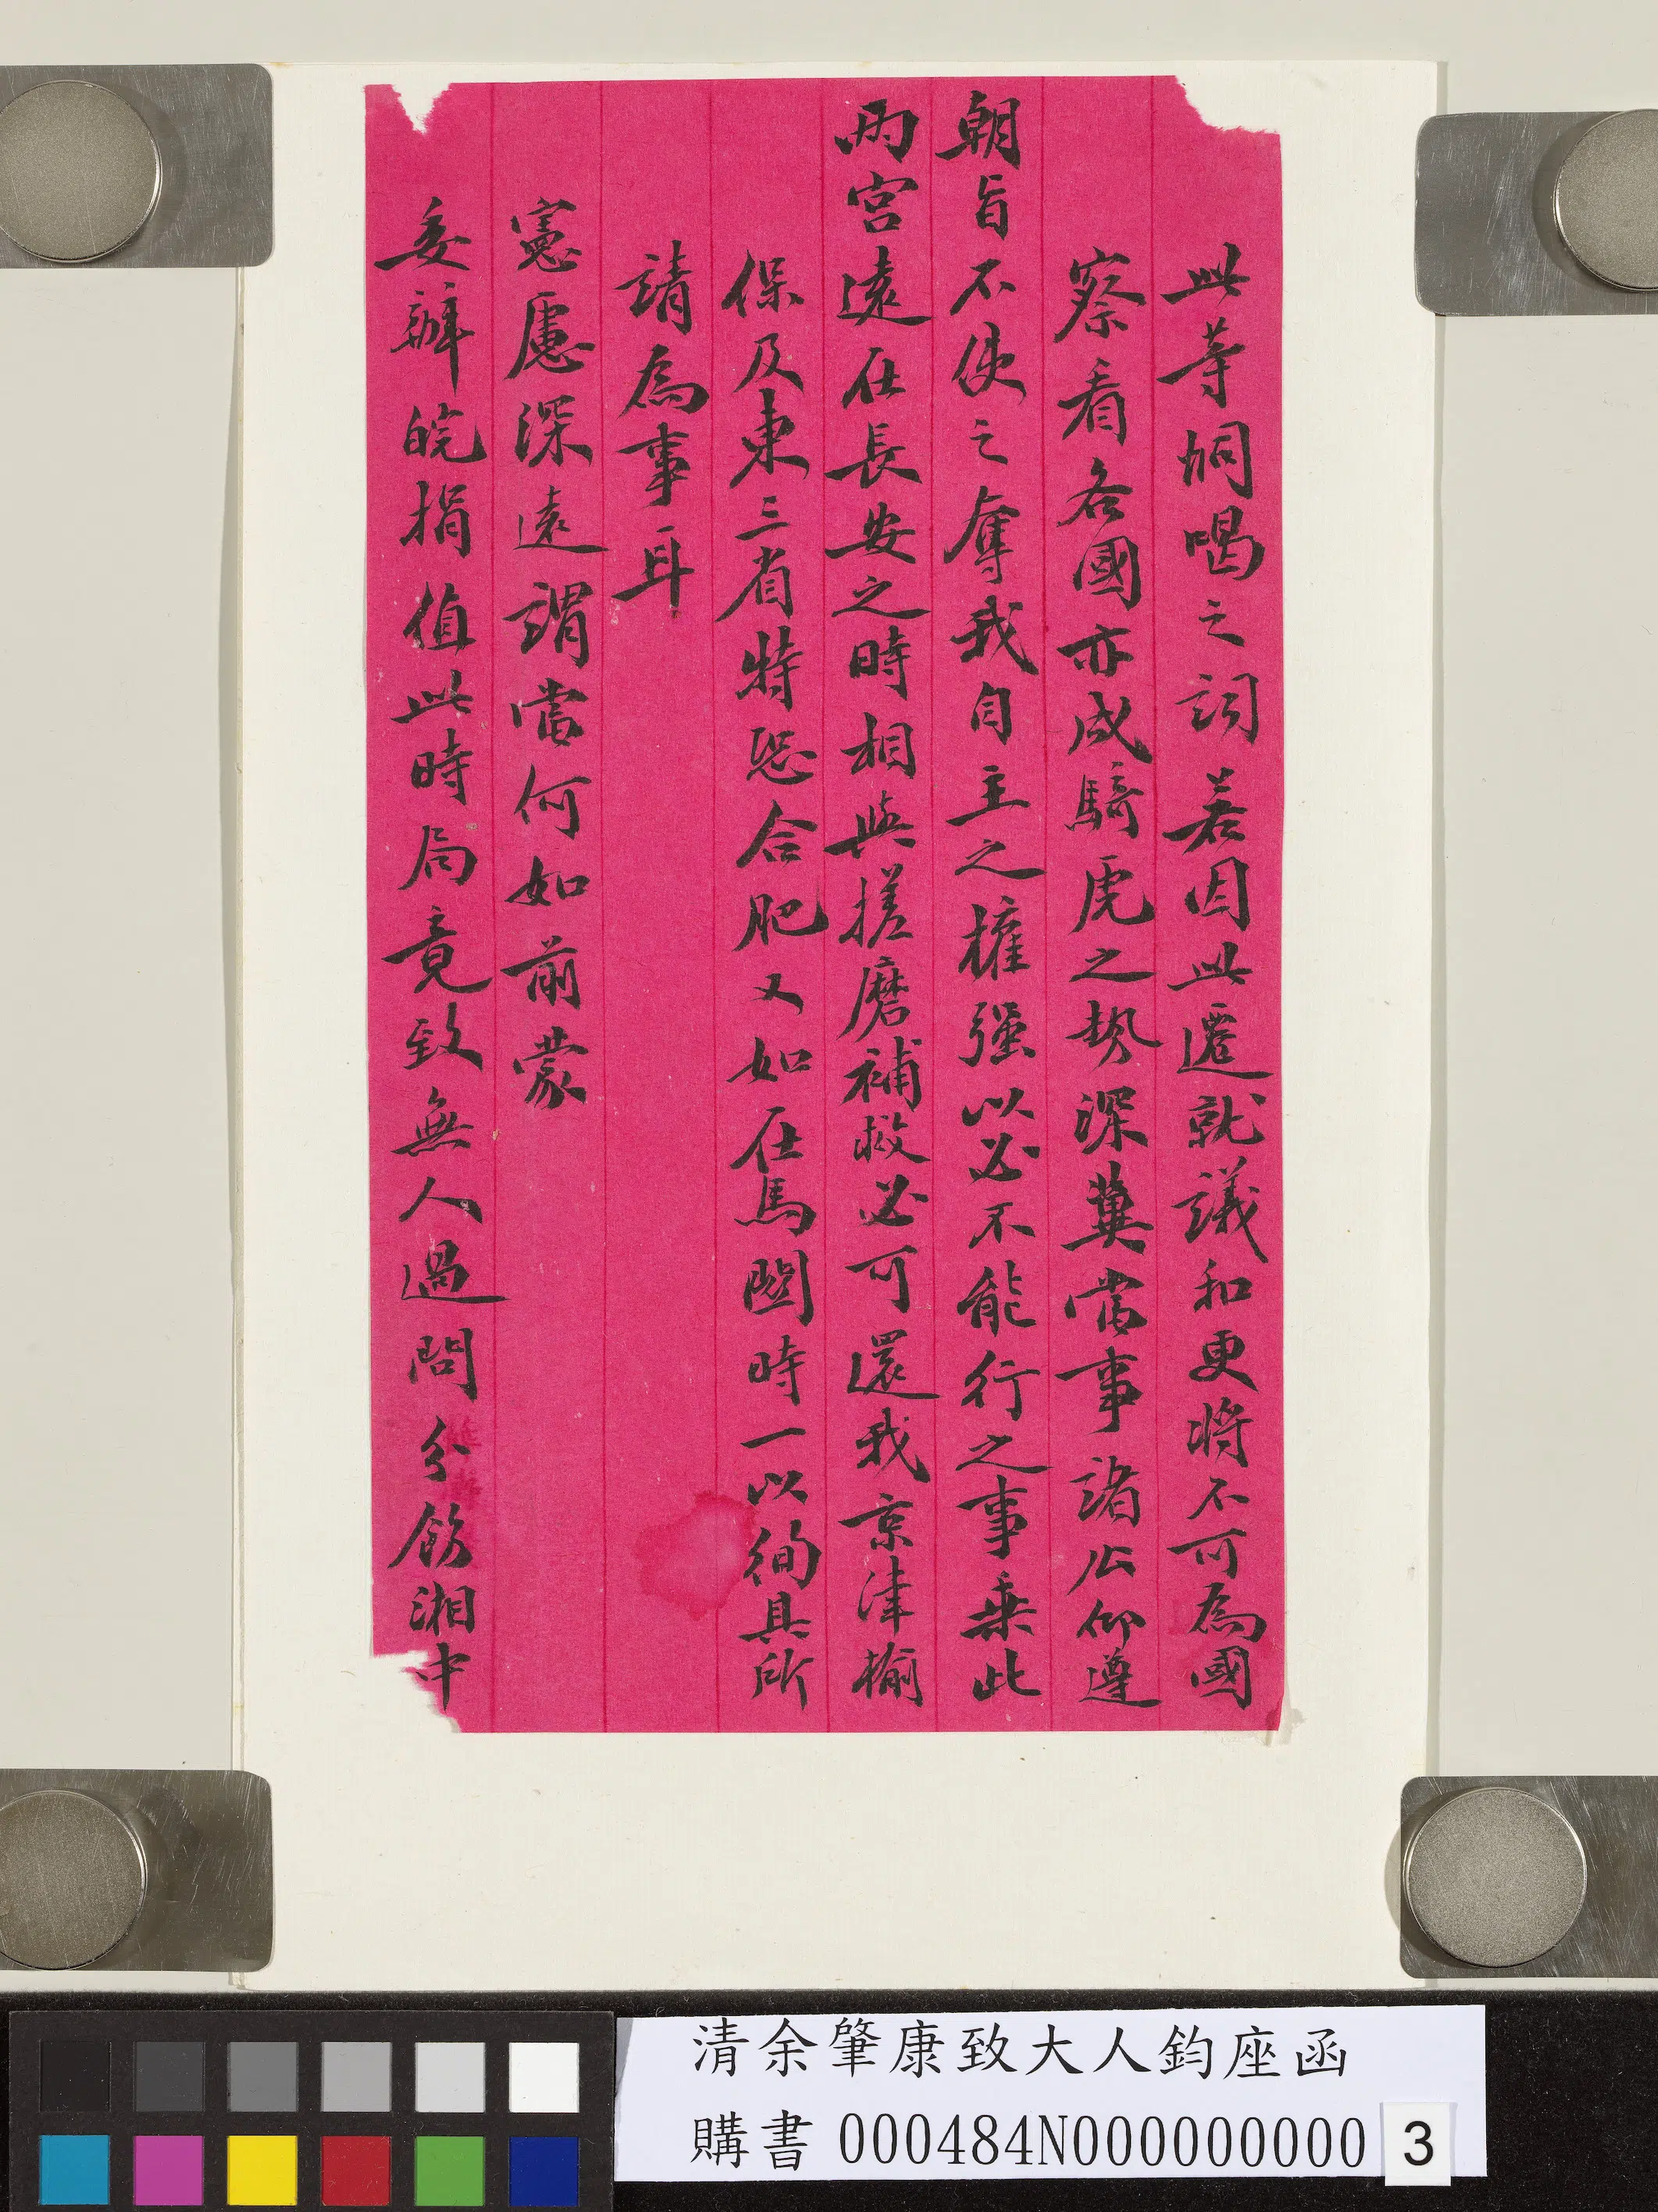 此等恫喝之詞若因此遷就議和更將不可為國
察看各國亦成騎虎之勢深冀當事諸公仰遵
朝旨不使之奪我自主之權強以必不能行之事乘此
兩宮遠在長安之時相與搓磨補救必可還我京津榆
保及東三省特恐合肥又如在馬關時一以徇其所
請為事耳
憲慮深遠謂當何如前蒙
委辦皖捐值此時局竟致無人過問分飭湘中
清余肇康致大人鈞座函
購書 000484N000000000 3